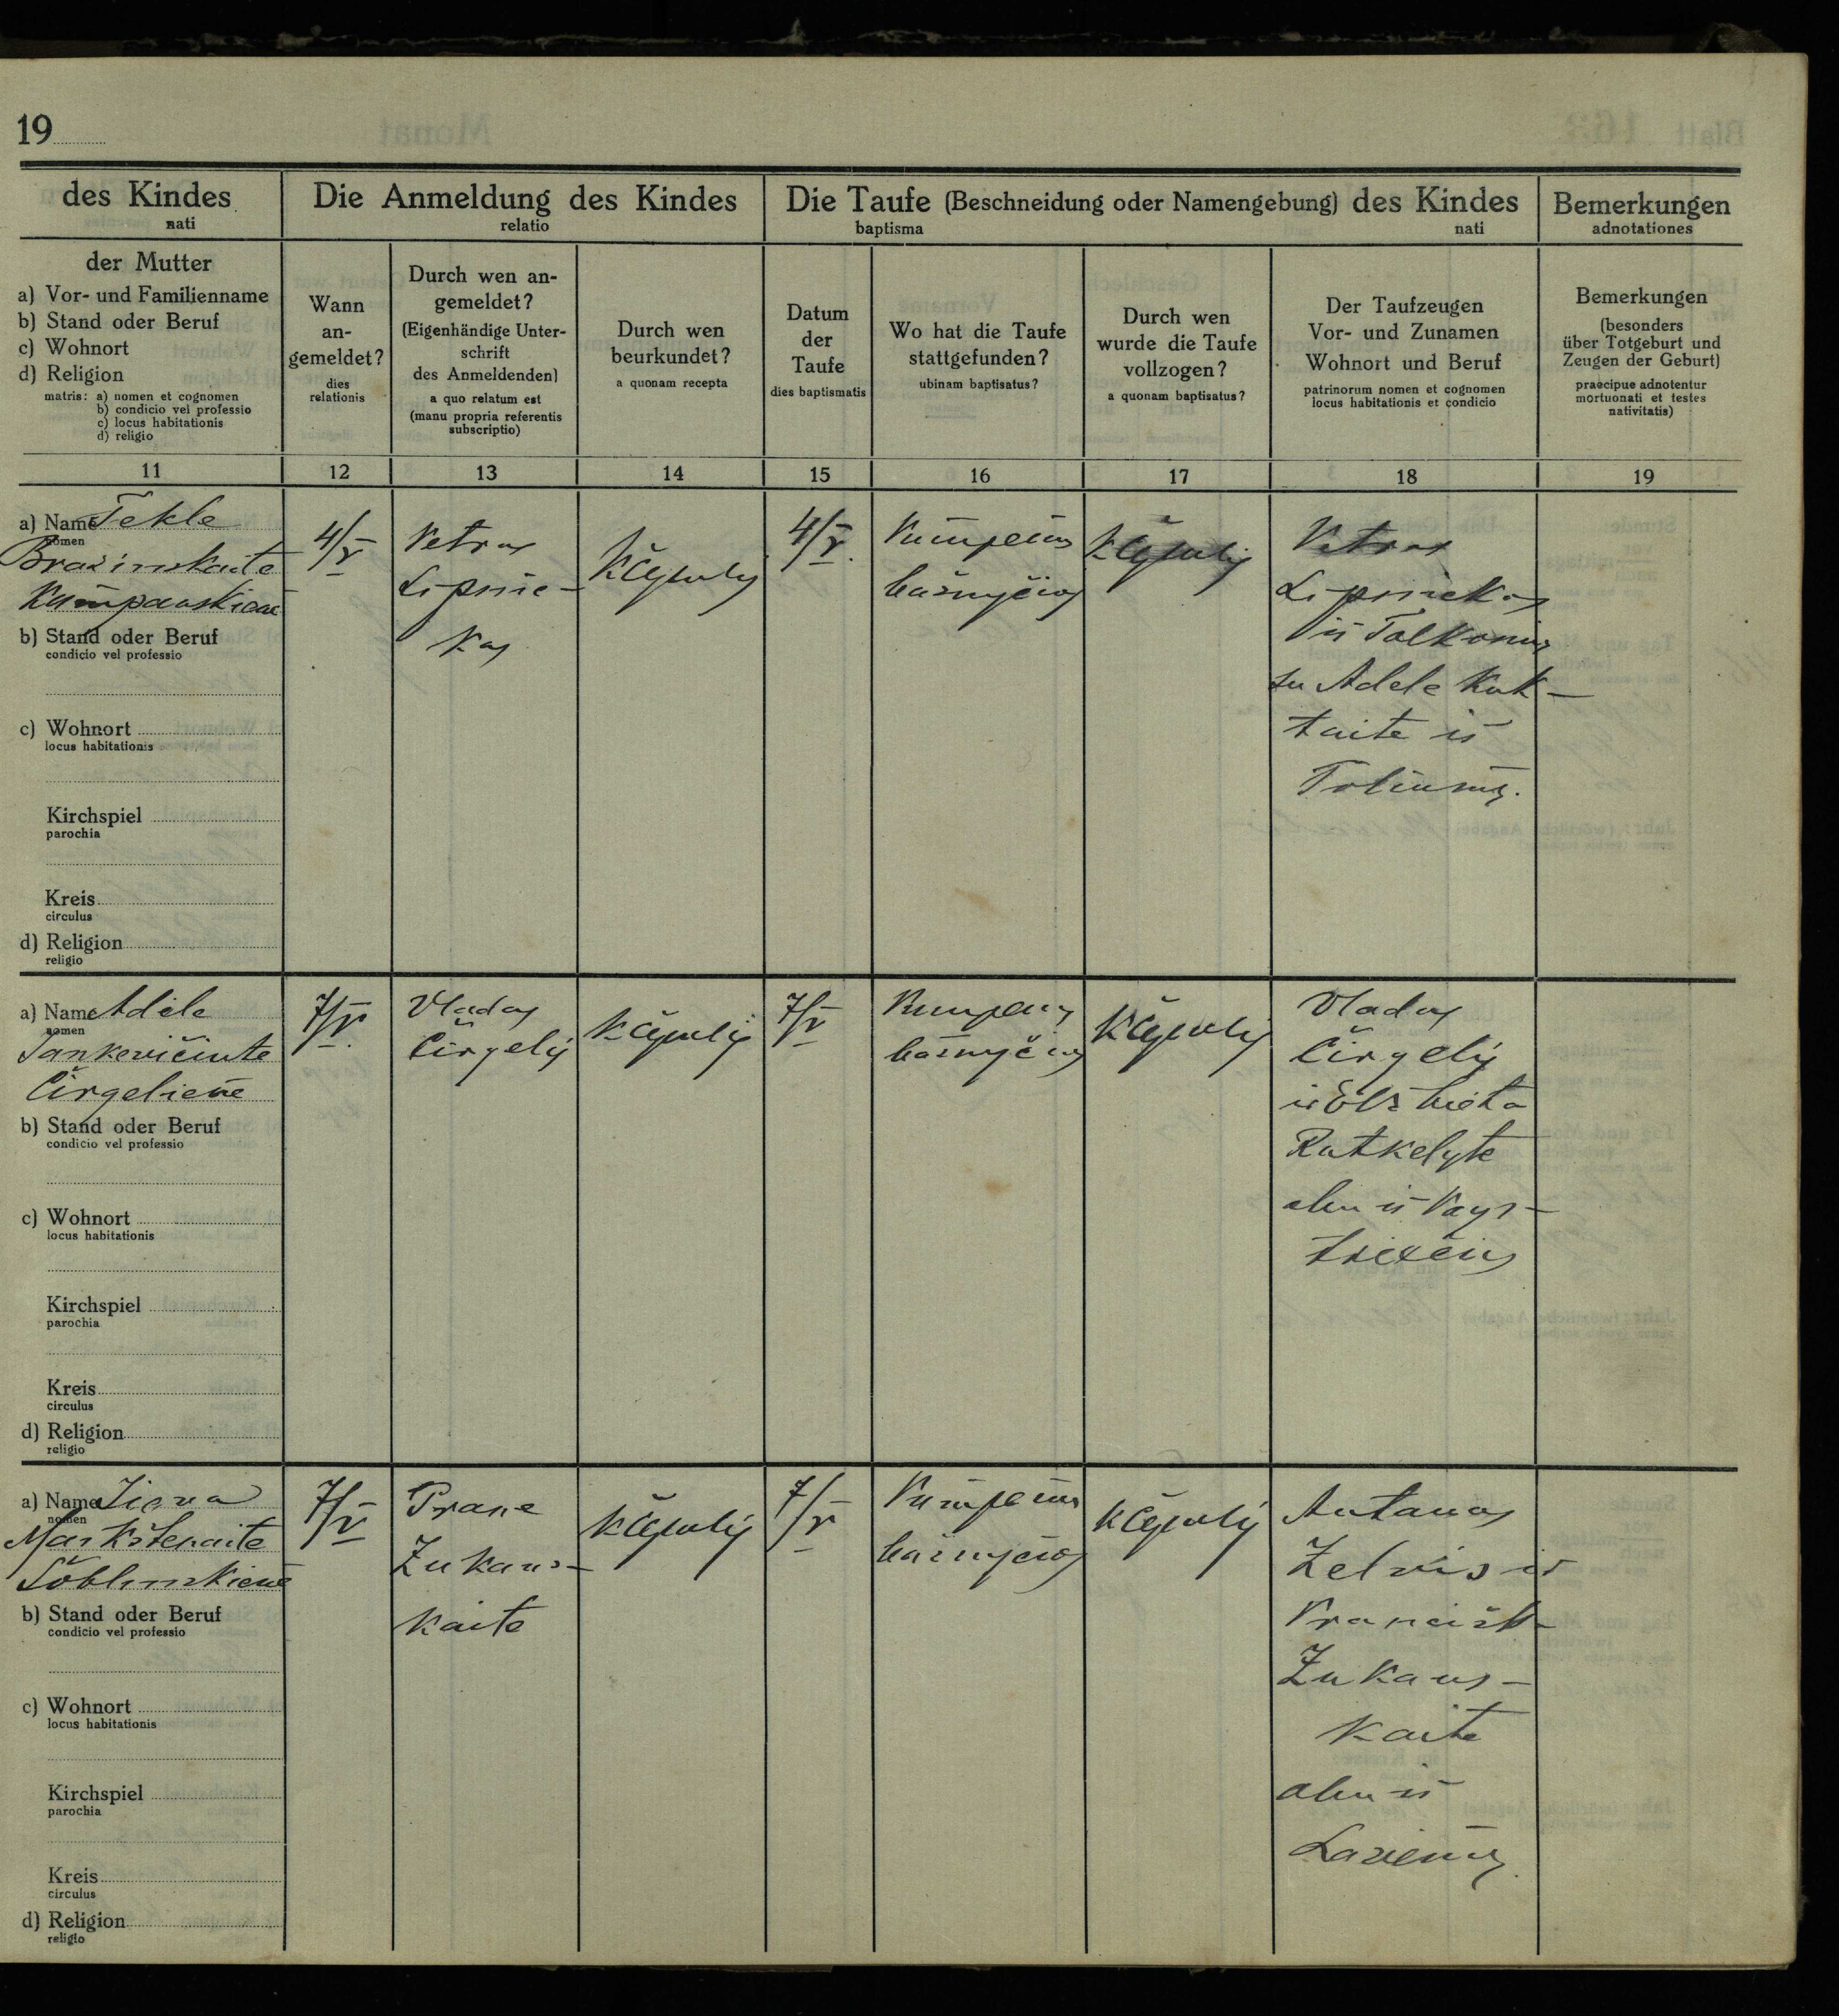 19
des Kindes
nati
Die Anmeldung des Kindes
relatio
Die Taufe (Beschneidung oder Namengebung) des Kindes
baptisma nati
Bemerkungen
adnotationes
der Mutter
a) Vor- und Familienname
b) Stand oder Beruf
c) Wohnort
d) Religion
matris: a) nomen et cognomen
b) condicio vel professio
c) locus habitationis
d) religio
Wann
an-
gemeldet?
dies
relationis
Durch wen an-
gemeldet?
(Eigenhändige Unter-
schrift
des Anmeldenden)
a quo relatum est
(manu propria referentis
subscriptio)
Durch wen
beurkundet?
a quonam recepta
Datum
der
Taufe
dies baptismatis
Wo hat die Taufe
stattgefunden?
ubinam baptisatus?
Durch wen
wurde die Taufe
vollzogen?
a quonam baptisatus?
Der Taufzeugen
Vor- und Zunamen
Wohnort und Beruf
patrinorum nomen et cognomen
locus habitationis et condicio
Bemerkungen
(besonders
über Totgeburt und
Zeugen der Geburt)
praecipue adnotentur
mortuonati et testes
nativitatis)
11 12 13 14 15 16 17 18 19
a) Name Tekle
nomen
Brazinskaite
b) Stand oder Beruf
condicio vel professio
c) Wohnort
locus habitationis
Kirchspiel
parochia
Kreis
circulus
d) Religion
religio
4/V
Petras
Lipnic-
kas
K Čepulis
4/V.
bažnyčioj
K Čepulis
Petras
Lipnickas
iš
su Adele Kuk-
taite iš
a) Name Adele
nomen
Jankevičiute
Čirgeliene
b) Stand oder Beruf
condicio vel professio
c) Wohnort
locus habitationis
Kirchspiel
parochia
Kreis
circulus
d) Religion
religio
7/V.
Vladas
Čirgelis
K Čepulis
7/V
bažnyčioj
K Čepulis
Vladas
Čirgelis
ir Elzbieta
Rutkelyte
abu iš
a) Name Jieva
nomen
Markštenaite
b) Stand oder Beruf
condicio vel professio
c) Wohnort
locus habitationis
Kirchspiel
parochia
Kreis
circulus
d) Religion
religio
7/V
Prane
Zukaus-
kaite
K Čepulis
7/V
bažnyčioj
K Čepulis
Antanas
Zelvis ir
Pranciška
Zukaus-
kaite
abu iš